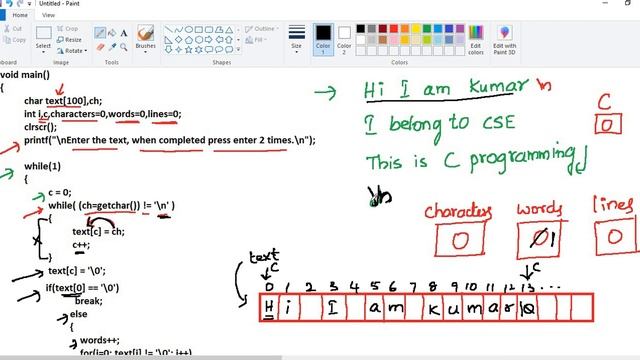 Untitled - Paint
Home
View
Cut
Copy
Paste
Clipboard
Select
Image
Tools
Brushes
Shapes
Outline
Fill
Size
Color 1
Color 2
Edit colors
Edit with Paint 3D
Colors
void main()
{
char text[100],ch;
int i,c,characters=0,words=0,lines=0;
clrscr();
printf("\nEnter the text, when completed press enter 2 times.\n");
while(1)
{
c = 0;
while( (ch=getchar()) != '\n' )
{
text[c] = ch;
c++;
}
text[c] = '\0';
if(text[0] == '\0')
break;
else
{
words++;
for(i=0; text[i] != '\0'; i++)
Hi I am Kumar \n
I belong to CSE
This is C programming
\n
C
0
characters
words
lines
0
0 1
0
text
C
C
0 1 2 3 4 5 6 7 8 9 10 11 12 13 ...
H i I am kumar \0